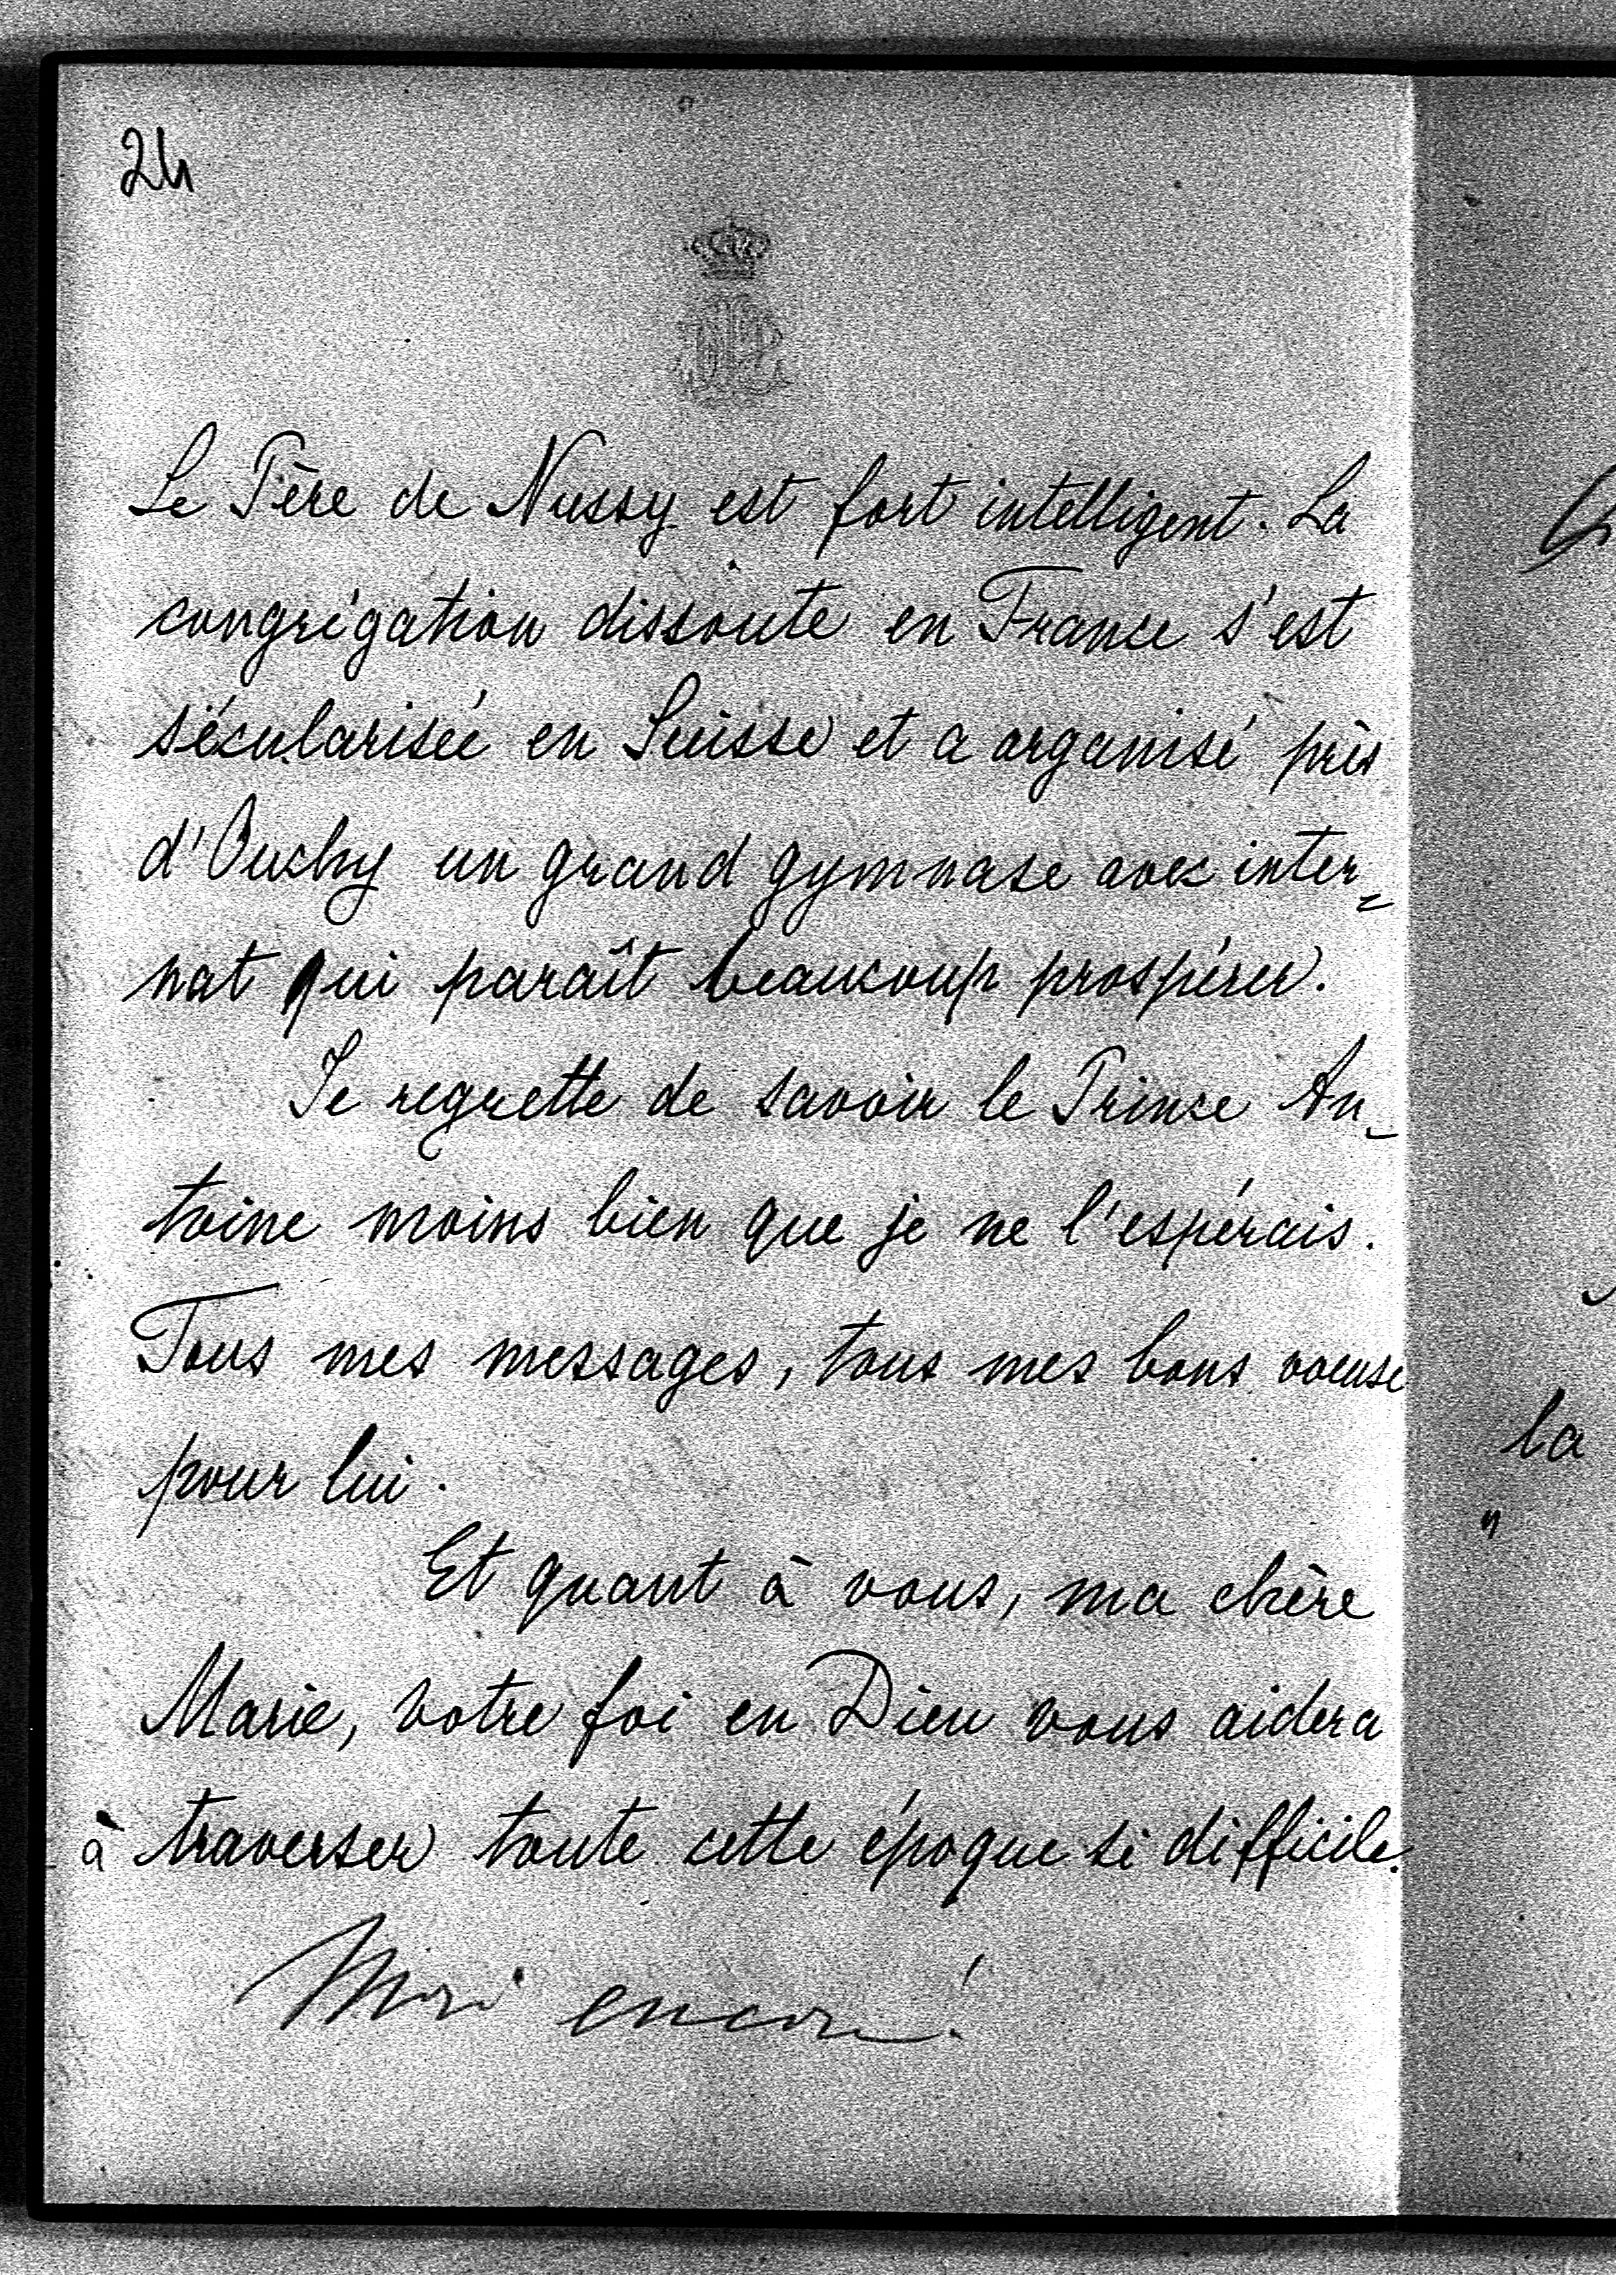 24
Le Père de Nussy est fort intelligent. La
congrégation dissoute en France s'est
sécularisée en Suisse et a organisé près
d'Ouchy un grand gymnase avec inter=
nat qui paraît beaucoup prospérer.
Je regrette de savoir le Prince An-
toine moins bien que je ne l'espérais.
Tous mes messages, tous mes bons voeux
pour lui.
Et quant à vous, ma chère
Marie, votre foi en Dieu vous aidera
à traverser toute cette époque si difficile.
la